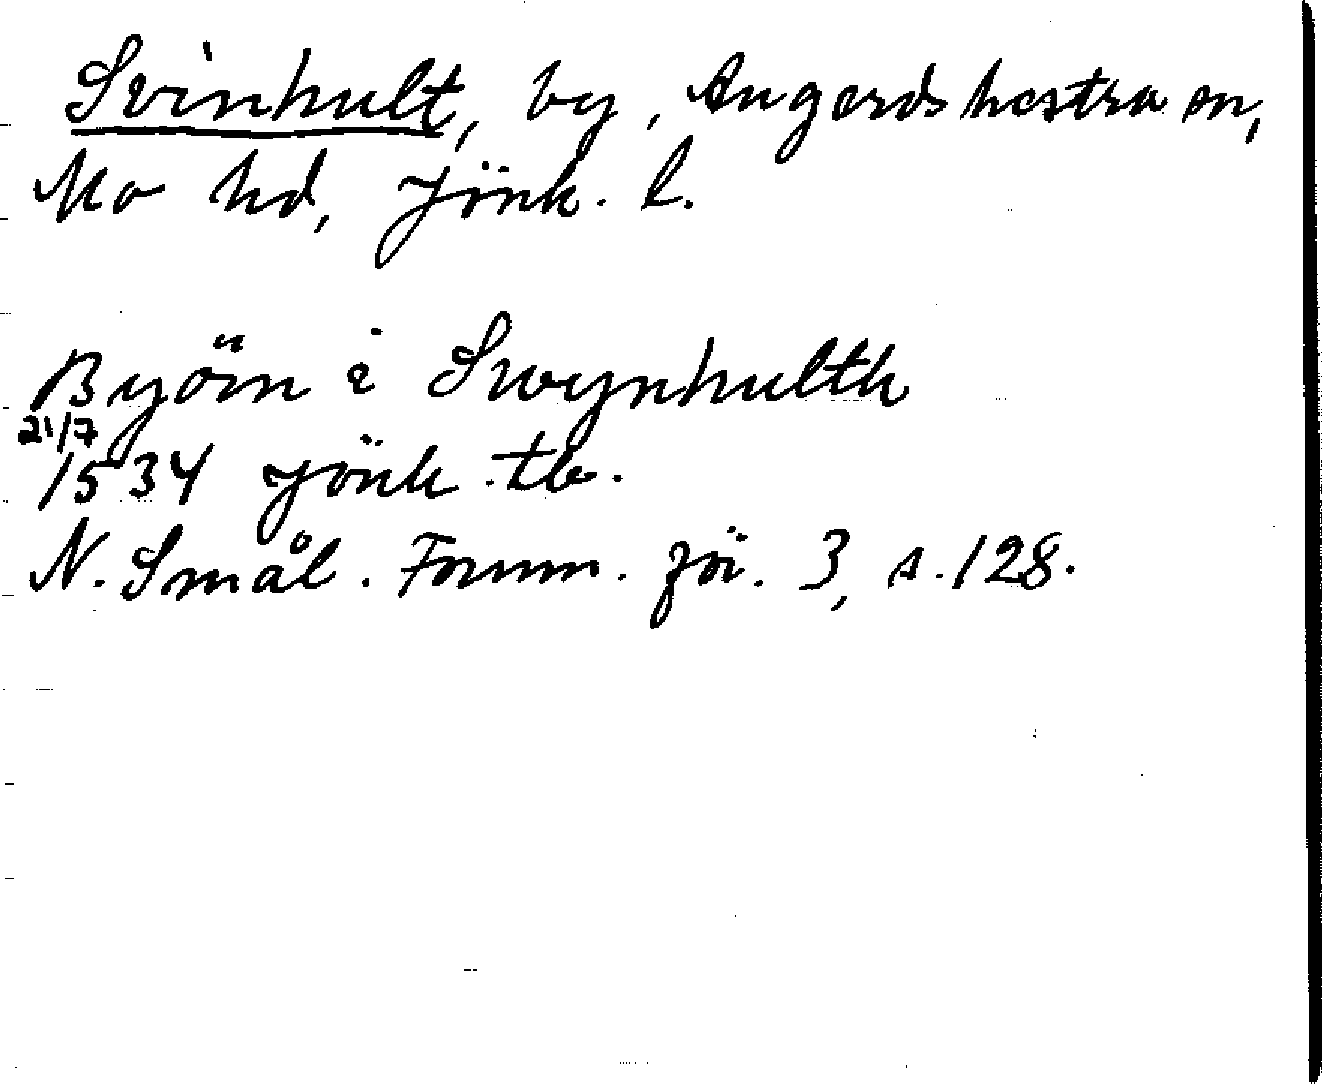 Svinhult, by, Angerdshestra sn,
Mo hd, Jönk. l.
Byörn i Swynhulth
21/7
1534 Jönk. tb.
N. Smål. Fornm. för. 3, s. 128.